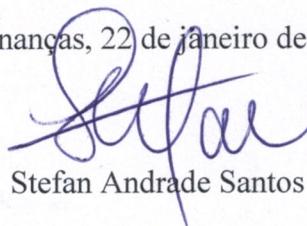 nanças, 22 de janeiro de
Stefan Andrade Santos